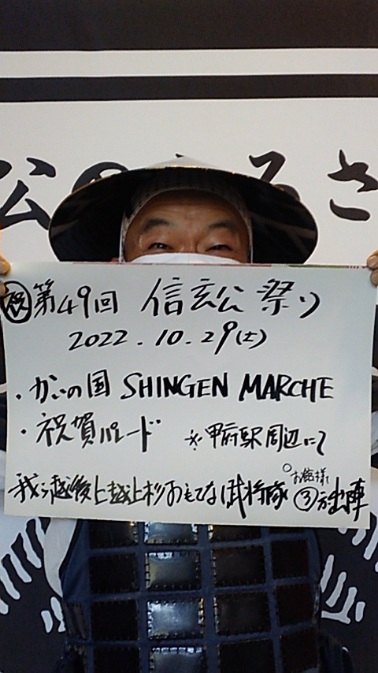 公のふるさ
㊗第49回 信玄公祭り
2022.10.29(土)
・かいの国 SHINGEN MARCHE
・祝賀パレード ※甲府駅周辺にて
お絵様
我ら越後上越上杉おもてなし武将隊③方出陣